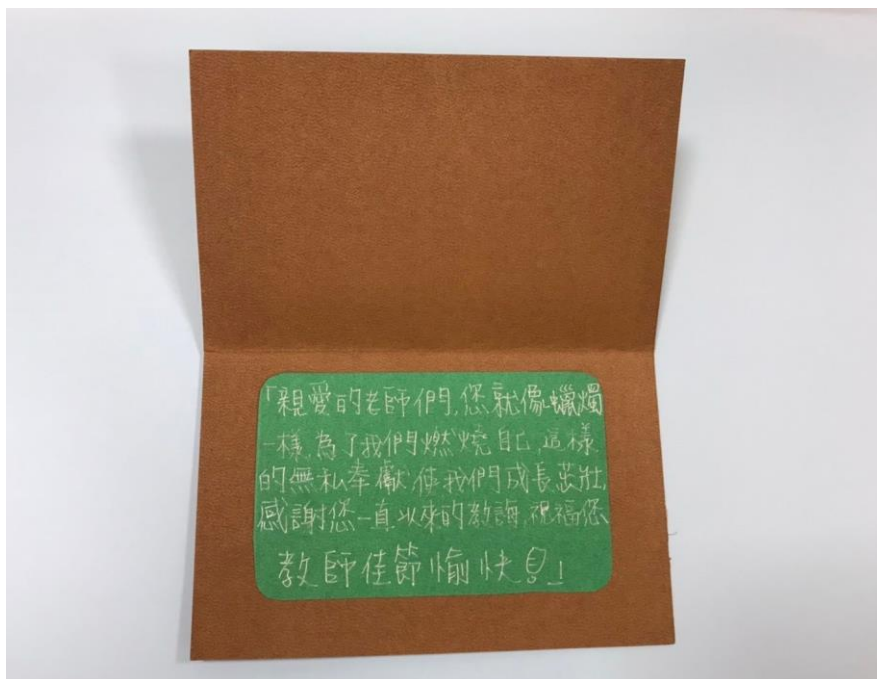 「親愛的老師們,您就像蠟燭
一樣,為了我們燃燒自己,這樣
的無私奉獻,使我們成長茁壯,
感謝您一直以來的教誨,祝福您、
教師佳節愉快!」